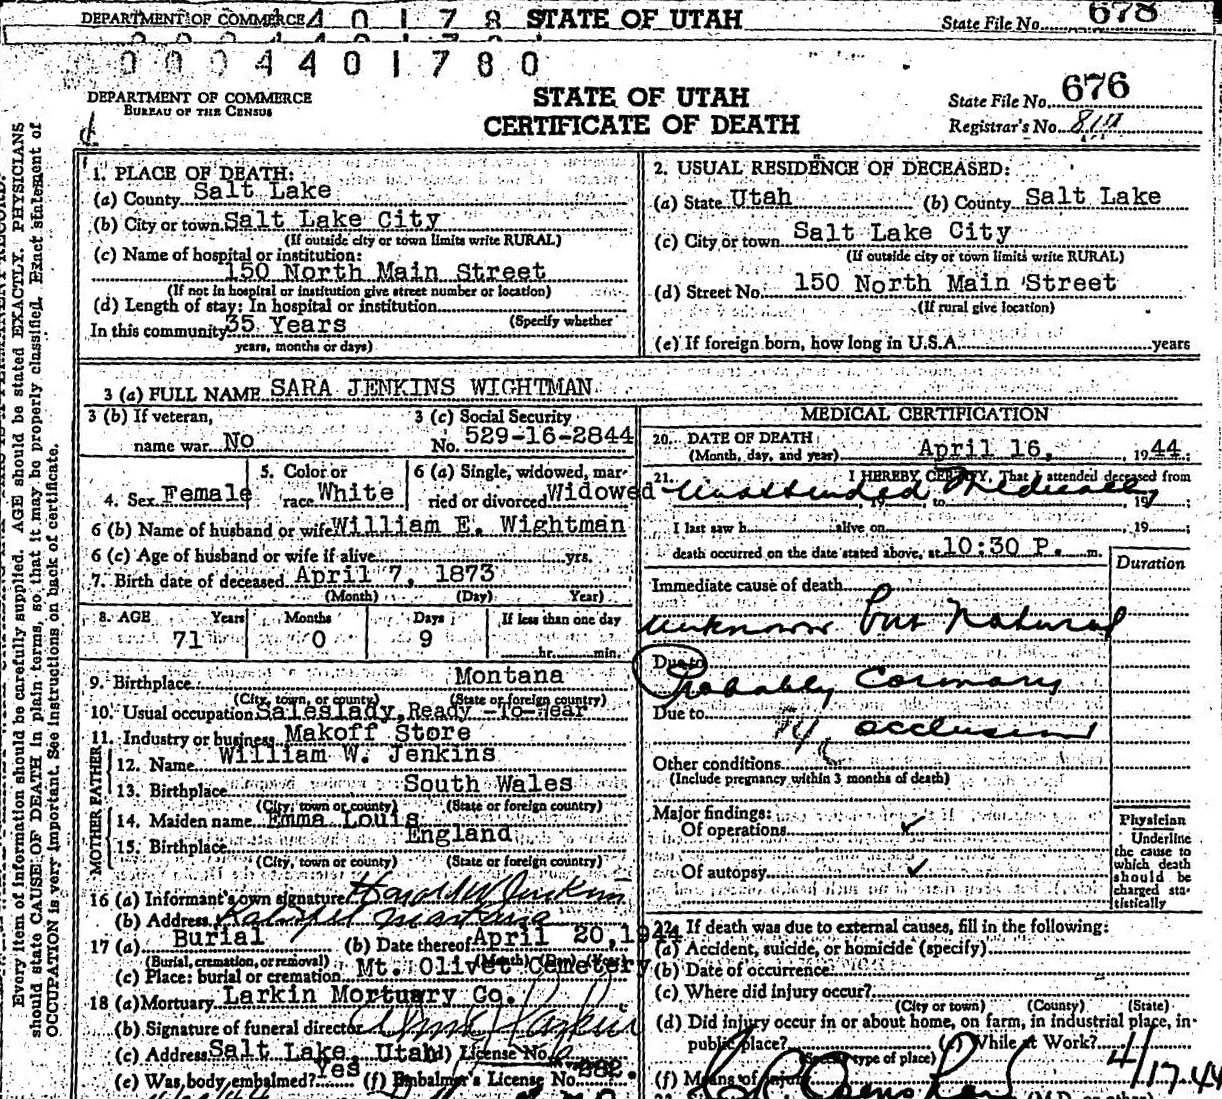 DEPARTMENT OF COMMERCE 4 0 1 7 8 STATE OF UTAH State File No. 678
0 0 0 4 4 0 1 7 8 0
DEPARTMENT OF COMMERCE
BUREAU OF THE CENSUS
STATE OF UTAH
CERTIFICATE OF DEATH
State File No. 676
Registrar's No.
Every item of information should be carefully supplied. AGE should be stated EXACTLY. PHYSICIANS
should state CAUSE OF DEATH in plain terms, so that it may be properly classified. Exact statement of
OCCUPATION is very important. See instructions on back of certificate.
1. PLACE OF DEATH:
(a) County Salt Lake
(b) City or town Salt Lake City
(If outside city or town limits write RURAL)
(c) Name of hospital or institution:
150 North Main Street
(If not in hospital or institution give street number or location)
(d) Length of stay: In hospital or institution
(Specify whether
In this community 35 Years
years, months or days)
2. USUAL RESIDENCE OF DECEASED:
(a) State Utah (b) County Salt Lake
(c) City or town Salt Lake City
(If outside city or town limits write RURAL)
(d) Street No. 150 North Main Street
(If rural give location)
(e) If foreign born, how long in U.S.A. years
3 (a) FULL NAME SARA JENKINS WIGHTMAN
3 (b) If veteran,
name war No
3 (c) Social Security
No. 529-16-2844
4. Sex Female
5. Color or
race White
6 (a) Single, widowed, mar-
ried or divorced Widowed
6 (b) Name of husband or wife William E. Wightman
6 (c) Age of husband or wife if alive yrs.
7. Birth date of deceased April 7, 1873
(Month) (Day) Year)
8. AGE Years Months Days If less than one day
71 0 9 hr. min.
9. Birthplace Montana
(City, town, or county) (State or foreign country)
10. Usual occupation Saleslady, Ready-To-Wear
11. Industry or business Makoff Store
FATHER
12. Name William W. Jenkins
13. Birthplace South Wales
(City, town or county) (State or foreign country)
MOTHER
14. Maiden name Emma Louis
15. Birthplace England
(City, town or county) (State or foreign country)
16 (a) Informant's own signature Harold W Jenkins
(b) Address Kalispel Montana
17 (a) Burial (b) Date thereof April 20, 1944
(Burial, cremation, or removal) (Month) (Day) (Year)
(c) Place: burial or cremation Mt. Olivet Cemetery
18 (a) Mortuary Larkin Mortuary Co.
(b) Signature of funeral director
(c) Address Salt Lake, Utah (d) License No.
(e) Was body embalmed? Yes (f) Embalmer's License No. 282.
MEDICAL CERTIFICATION
20. DATE OF DEATH
(Month, day, and year) April 16, 1944
21. I HEREBY CERTIFY, That I attended deceased from
Unattended Medically
, 19 , to 19 ;
I last saw h alive on , 19 ;
death occurred on the date stated above, at 10:30 P. m.
Duration
Immediate cause of death
Unknown but Natural
Due to
Probably Coronary
Due to occlusion
Other conditions
(Include pregnancy within 3 months of death)
Major findings:
Of operations ✓
Of autopsy ✓
Physician
Underline
the cause to
which death
should be
charged sta-
tistically
22. If death was due to external causes, fill in the following:
(a) Accident, suicide, or homicide (specify)
(b) Date of occurrence
(c) Where did injury occur?
(City or town) (County) (State)
(d) Did injury occur in or about home, on farm, in industrial place, in
public place? (e) While at Work?
(Specify type of place)
(f) Means of injury 4/17.44
(M.D. or other)